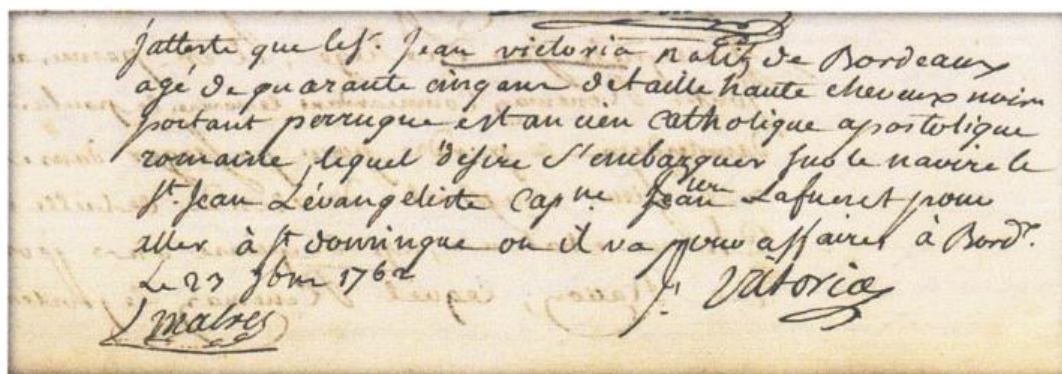 j'atteste que le Sr. Jean victoria natif de Bordeaux
agé de quarante cinq ans de taille haute cheveux noirs
portant perruque est ancien Catholique apostolique
romaine, lequel desire S'embarquer sur le navire le
St. Jean L'évangeliste Capne. Jean Lafueret pour
aller à St domingue ou il va pour affaires à Bordx.
Le 23 1762
J. Victoria